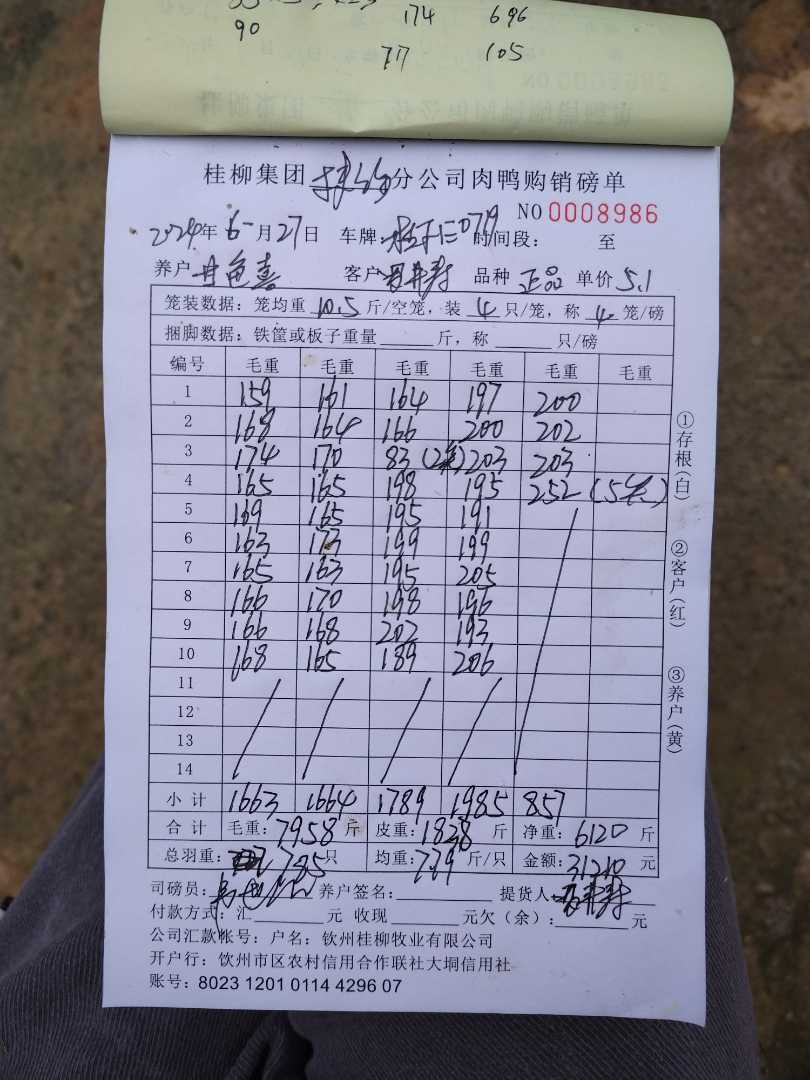 90 174 696
77 105
桂柳集团 分公司肉鸭购销磅单
NO 0008986
2024年6月27日 车牌: 0719 时间段: 至
养户 客户 品种 正品 单价 5.1
笼装数据: 笼均重 10.5 斤/空笼, 装 4 只/笼, 称 4 笼/磅
捆脚数据: 铁筐或板子重量 斤, 称 只/磅
编号 毛重 毛重 毛重 毛重 毛重 毛重
1 159 161 164 197 200
2 168 164 166 200 202
3 174 170 83 203 203
4 165 165 198 195 252
5 169 165 195 191
6 163 173 199 199
7 165 163 195 205
8 166 170 198 196
9 166 168 202 193
10 168 165 189 206
11
12
13
14
小计 1663 1664 1789 1985 857
合计 毛重: 7958 斤 皮重: 1838 斤 净重: 6120 斤
总羽重: 785 只 均重: 7.79 斤/只 金额: 31210 元
司磅员: 养户签名: 提货人
付款方式: 汇 元 收现 元欠(余): 元
公司汇款帐号: 户名: 钦州桂柳牧业有限公司
开户行: 钦州市区农村信用合作联社大垌信用社
账号: 8023 1201 0114 4296 07
①存根(白)
②客户(红)
③养户(黄)